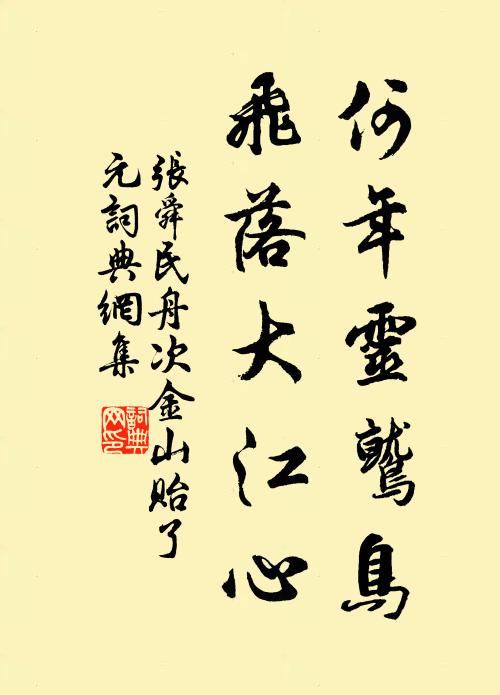 何年靈鷲島
飛落大江心
張舜民舟次金山貽了
元詞典網集
詞典
網印